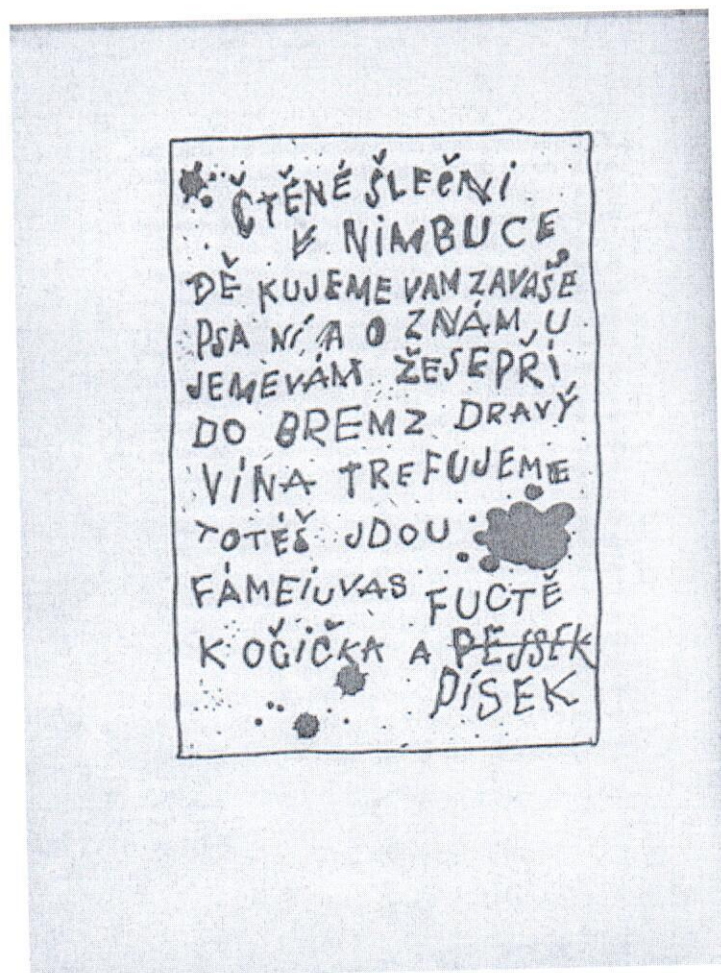 ČTĚNÉ ŠLEČNI
V NIMBUCE
DĚ KUJEME VAM ZAVAŠE
PSA NÍ A O ZNÁM, U
JEMEVÁM ŽESEPŘÍ
DO BREMZ DRAVÝ
VÍNA TREFUJEME
TOTÉŠ JDOU
FÁMEIUVAS FUCTĚ
K OČIČKA A PEJSEK
PÍSEK